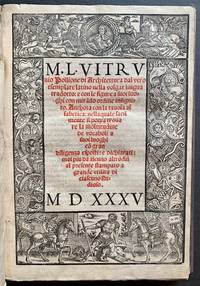 M·L·VITRV
uio Pollione di Architettura dal vero
esemplare latino nella volgar lingua
tradotto: e con le figure a suoi luo
ghi con mirãdo ordine insigni
to. Anchora con la tauola al
fabetica: nella quale facil
mente si potra troua
re la moltitudine
de vocaboli a
suoi luoghi
cõ gran
diligenza esposti: e dichiarati:
mai piu da niuno altro fin
al presente stampato a
grande vtilita di
ciascuno stu
dioso.
M D XXXV